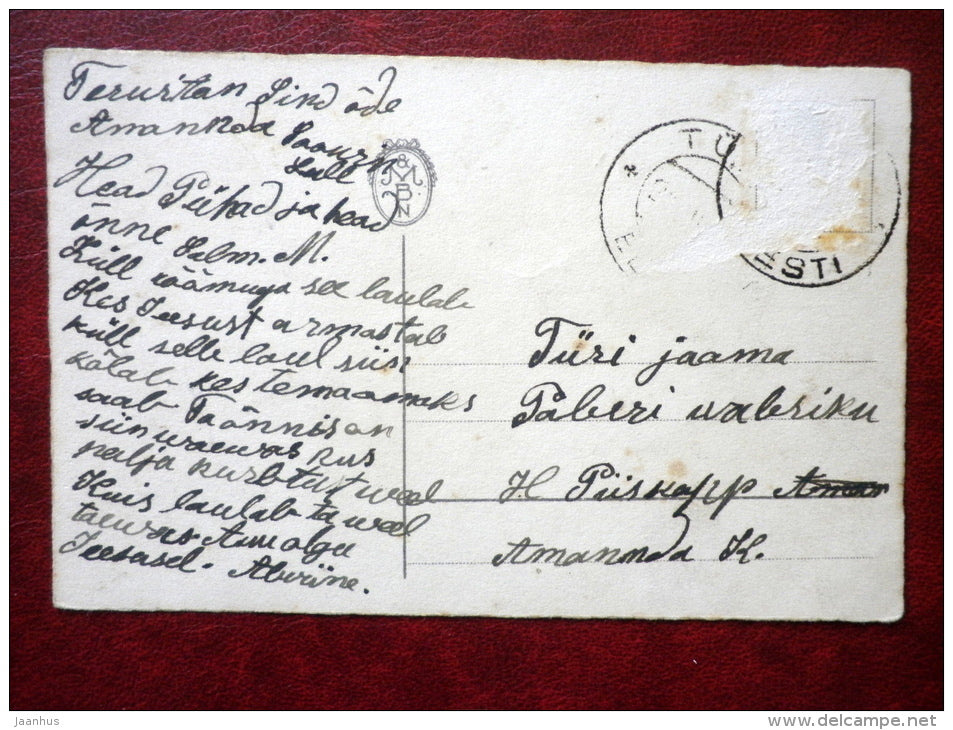 Tervitan Sind õde
Amanda
Lull
Head Pühad ja head
õnne Salm. M.
Küll rõõmuga see laulab
Kes Jeesust armastab
küll selle laul siin
kõlab kes temaomaks
saab Taõnnis on
siin waewas kus
palja kurbtust weel
Kuis laulab ta weel
taewas Au olgu
Jeesusel.
TÜ
EESTI
& M B N
Türi jaama
Paberi wabriku
H Piiskopp
Amanda K.
Jaanhus
www.delcampe.net